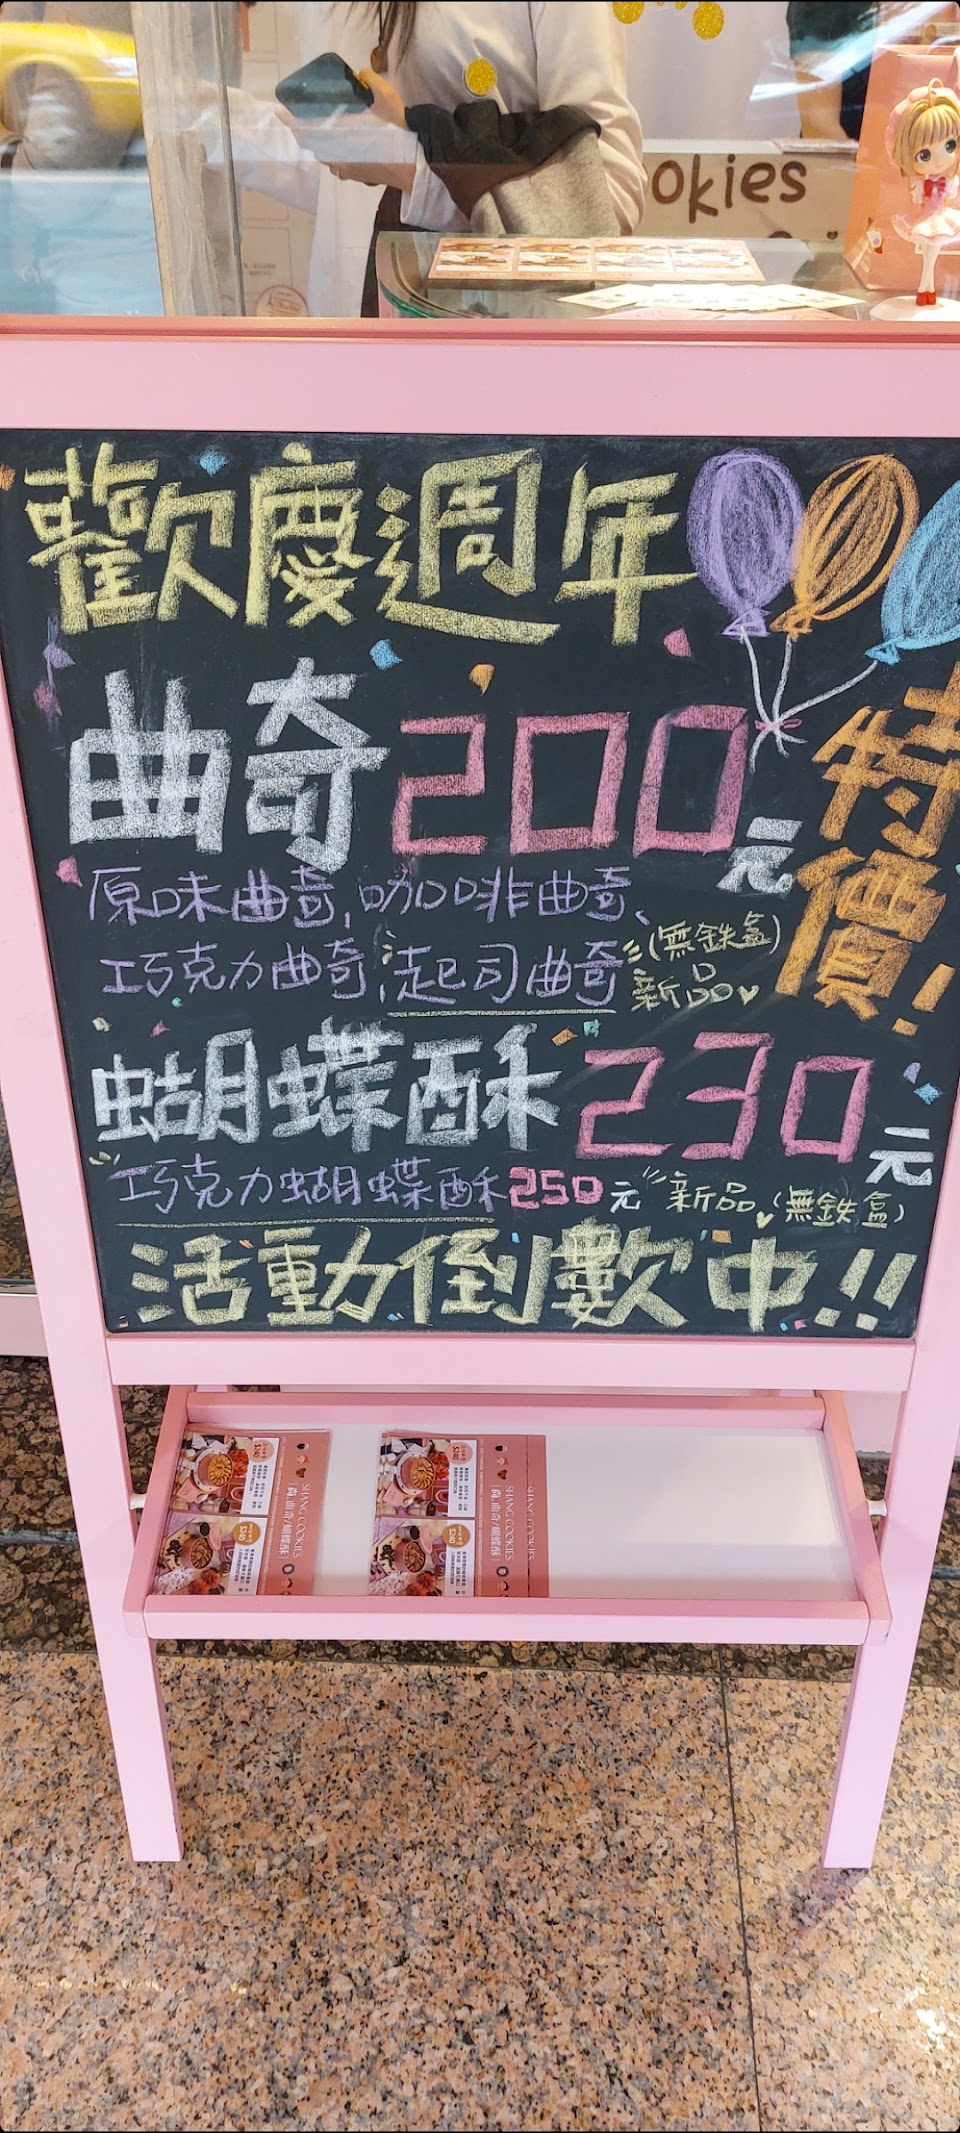 okies
歡慶週年
曲奇200元 特價!
原味曲奇,咖啡曲奇、
巧克力曲奇,起司曲奇 (無鉄盒)新品
蝴蝶酥230元
巧克力蝴蝶酥250元 新品(無鉄盒)
活動倒數中!!
SHANG COOKIES
曲奇/蝴蝶酥
SHANG COOKIES
曲奇/蝴蝶酥
SHANG COOKIES